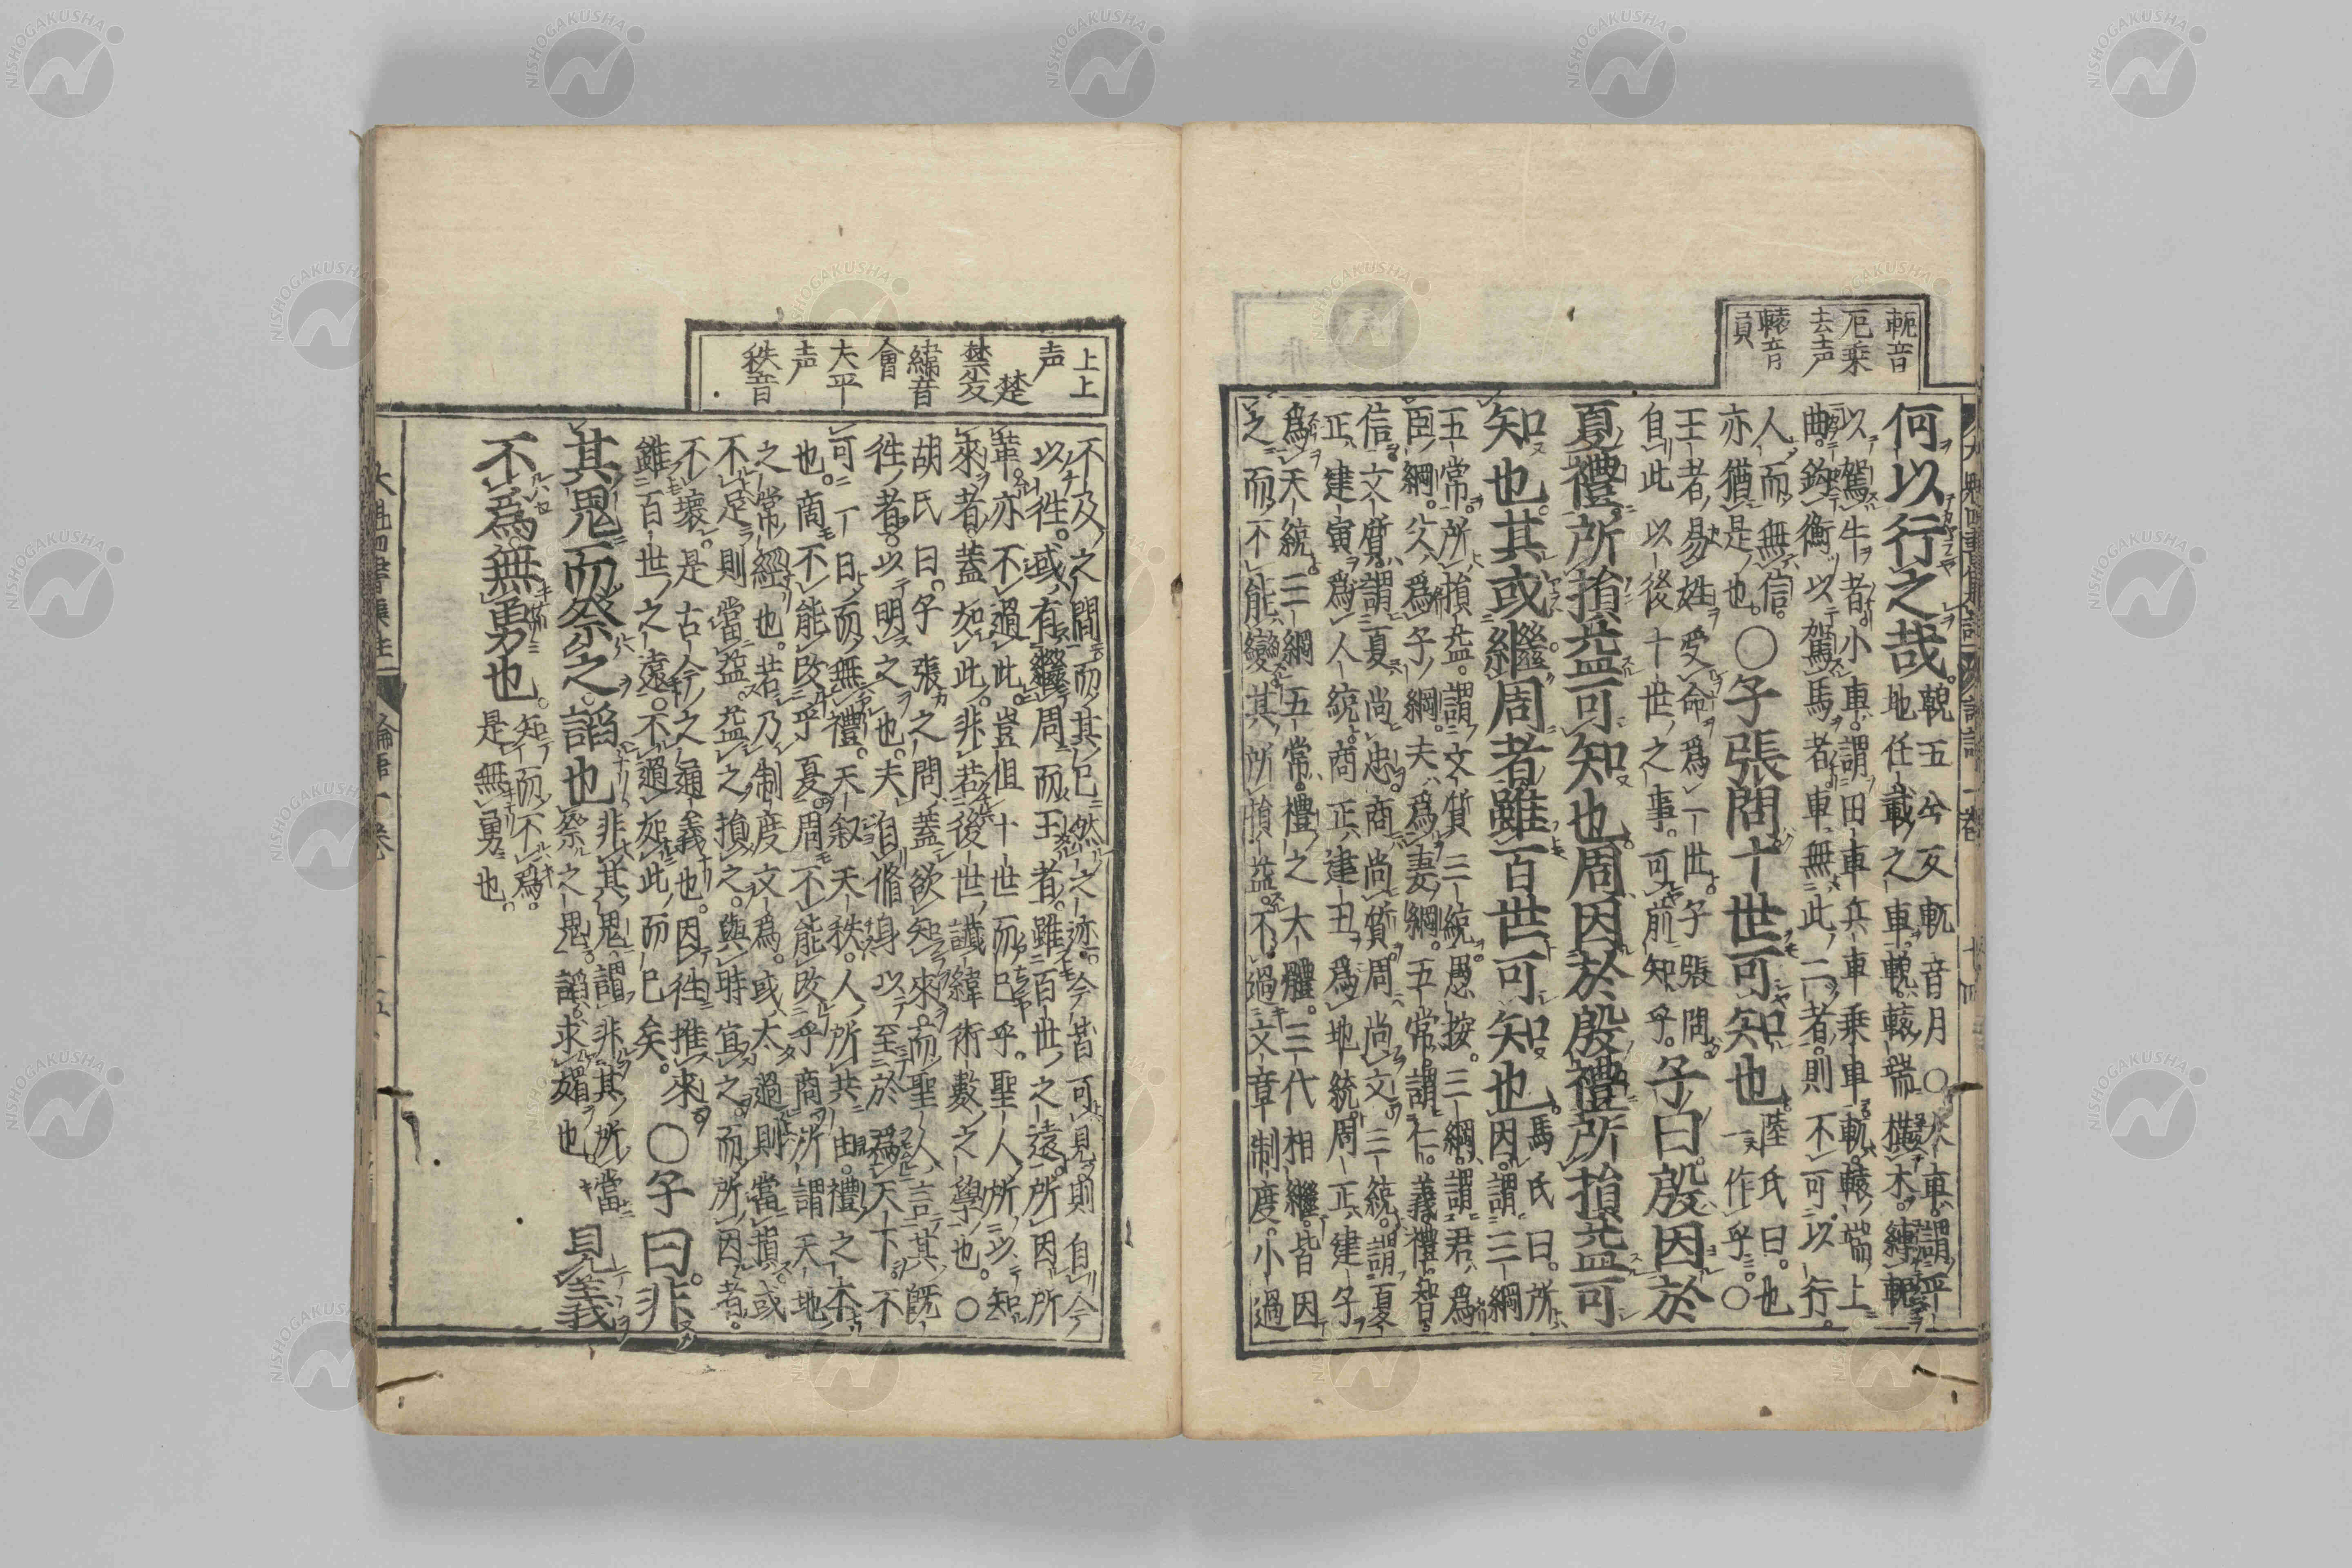 軛音
厄乗
去声
轅音
員
何以行之哉。
輗五兮反軏音月○大車。謂平
地任載之車。輗。轅端橫木。縛軛
以駕牛者。小車。謂田車兵車乗車。軏。轅端上
曲。鉤衡以駕馬者。車無此二者。則不可以行。
人而無信。
亦猶是也。
○子張問十世可知也。
陸氏曰。也
一作乎。○
王者易姓受命爲一世。子張問。
自此以後十世之事。可前知乎。
子曰。殷因於
夏禮。所損益可知也。周因於殷禮。所損益可
知也。其或繼周者。雖百世可知也。
馬氏曰。所
因。謂三綱
五常。所損益。謂文質三統。愚按。三綱。謂君爲
臣綱。父爲子綱。夫爲妻綱。五常。謂仁。義。禮。智。
信。文質。謂夏尚忠。商尚質。周尚文。三統。謂夏
正建寅爲人統。商正建丑爲地統。周正建子
爲天統。三綱五常。禮之大體。三代相繼。皆因
之而不能變。其所損益。不過文章制度。小過
上上
声
楚
禁反
緯音
會
大平
声
秩音
不及之間。而其已然之迹。今昔可見。則自今
以徃。或有繼周而王者。雖百世之遠。所因所
革。亦不過此。豈但十世而已乎。聖人所以知
來者。蓋如此。非若後世讖緯術數之學也。○
胡氏曰。子張之問。蓋欲知來。而聖人言其旣
徃者。以明之也。夫自脩身以至於爲天下。不
可一日而無禮。天叙天秩。人所共由。禮之本
也。商不能改乎夏。周不能改乎商。所謂天地
之常經也。若乃制度文爲。或太過則當損。或
不足則當益。益之損之。與時宜之。而所因者。
不壞。是古今之通義也。因徃推來。
雖百世之遠。不過如此而已矣。
○子曰。非
其鬼而祭之。諂也。
非其鬼。謂非其所當
祭之鬼。諂。求媚也。
見義
不爲。無勇也。
知而不爲。
是無勇也。
大魁四書集註 論語一卷 十五